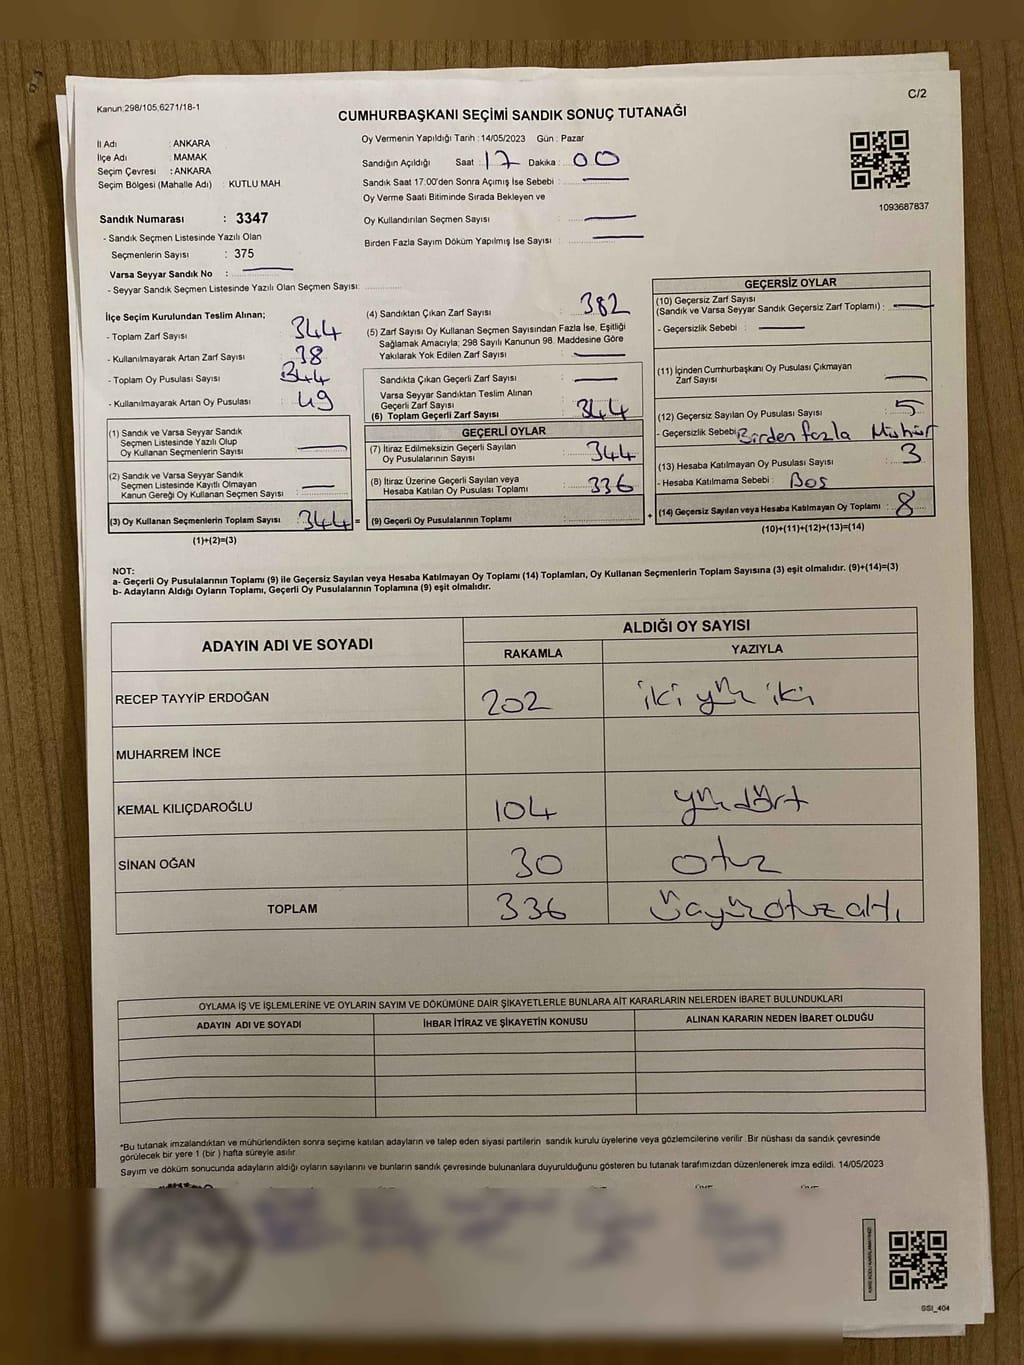 C/2
Kanun:298/105,6271/18-1
CUMHURBAŞKANI SEÇİMİ SANDIK SONUÇ TUTANAĞI
İl Adı : ANKARA
İlçe Adı : MAMAK
Seçim Çevresi : ANKARA
Seçim Bölgesi (Mahalle Adı) : KUTLU MAH.
Sandık Numarası : 3347
- Sandık Seçmen Listesinde Yazılı Olan
Seçmenlerin Sayısı : 375
Varsa Seyyar Sandık No :
- Seyyar Sandık Seçmen Listesinde Yazılı Olan Seçmen Sayısı:
Oy Vermenin Yapıldığı Tarih : 14/05/2023 Gün : Pazar
Sandığın Açıldığı Saat : 17 Dakika : 00
Sandık Saat 17.00'den Sonra Açımış İse Sebebi :
Oy Verme Saati Bitiminde Sırada Bekleyen ve
Oy Kullandırılan Seçmen Sayısı :
Birden Fazla Sayım Döküm Yapılmış İse Sayısı :
1093687837
İlçe Seçim Kurulundan Teslim Alınan;
- Toplam Zarf Sayısı : 344
- Kullanılmayarak Artan Zarf Sayısı : 38
- Toplam Oy Pusulası Sayısı : 344
- Kullanılmayarak Artan Oy Pusulası : 49
(1) Sandık ve Varsa Seyyar Sandık
Seçmen Listesinde Yazılı Olup
Oy Kullanan Seçmenlerin Sayısı :
(2) Sandık ve Varsa Seyyar Sandık
Seçmen Listesinde Kayıtlı Olmayan
Kanun Gereği Oy Kullanan Seçmen Sayısı :
(3) Oy Kullanan Seçmenlerin Toplam Sayısı : 344 =
(1)+(2)=(3)
(4) Sandıktan Çıkan Zarf Sayısı : 382
(5) Zarf Sayısı Oy Kullanan Seçmen Sayısından Fazla İse, Eşitliği
Sağlamak Amacıyla; 298 Sayılı Kanunun 98. Maddesine Göre
Yakılarak Yok Edilen Zarf Sayısı :
Sandıkta Çıkan Geçerli Zarf Sayısı :
Varsa Seyyar Sandıktan Teslim Alınan
Geçerli Zarf Sayısı :
(6) Toplam Geçerli Zarf Sayısı : 344
GEÇERLİ OYLAR
(7) İtiraz Edilmeksizin Geçerli Sayılan
Oy Pusulalarının Sayısı : 344
(8) İtiraz Üzerine Geçerli Sayılan veya
Hesaba Katılan Oy Pusulası Toplamı : 336
(9) Geçerli Oy Pusulalarının Toplamı : +
GEÇERSİZ OYLAR
(10) Geçersiz Zarf Sayısı
(Sandık ve Varsa Seyyar Sandık Geçersiz Zarf Toplamı) :
- Geçersizlik Sebebi :
(11) İçinden Cumhurbaşkanı Oy Pusulası Çıkmayan
Zarf Sayısı :
(12) Geçersiz Sayılan Oy Pusulası Sayısı : 5
- Geçersizlik Sebebi : Birden fazla Mühür
(13) Hesaba Katılmayan Oy Pusulası Sayısı : 3
- Hesaba Katılmama Sebebi : Boş
(14) Geçersiz Sayılan veya Hesaba Katılmayan Oy Toplamı : 8
(10)+(11)+(12)+(13)=(14)
NOT:
a- Geçerli Oy Pusulalarının Toplamı (9) ile Geçersiz Sayılan veya Hesaba Katılmayan Oy Toplamı (14) Toplamları, Oy Kullanan Seçmenlerin Toplam Sayısına (3) eşit olmalıdır. (9)+(14)=(3)
b- Adayların Aldığı Oyların Toplamı, Geçerli Oy Pusulalarının Toplamına (9) eşit olmalıdır.
ADAYIN ADI VE SOYADI
ALDIĞI OY SAYISI
RAKAMLA YAZIYLA
RECEP TAYYİP ERDOĞAN 202 iki yüz iki
MUHARREM İNCE
KEMAL KILIÇDAROĞLU 104 yüz dört
SİNAN OĞAN 30 otuz
TOPLAM 336 üçyüzotuzaltı
OYLAMA İŞ VE İŞLEMLERİNE VE OYLARIN SAYIM VE DÖKÜMÜNE DAİR ŞİKAYETLERLE BUNLARA AİT KARARLARIN NELERDEN İBARET BULUNDUKLARI
ADAYIN ADI VE SOYADI İHBAR İTİRAZ VE ŞİKAYETİN KONUSU ALINAN KARARIN NEDEN İBARET OLDUĞU
*Bu tutanak imzalandıktan ve mühürlendikten sonra seçime katılan adayların ve talep eden siyasi partilerin sandık kurulu üyelerine veya gözlemcilerine verilir. Bir nüshası da sandık çevresinde
görülecek bir yere 1 (bir ) hafta süreyle asılır.
Sayım ve döküm sonucunda adayların aldığı oyların sayılarını ve bunların sandık çevresinde bulunanlara duyurulduğunu gösteren bu tutanak tarafımızdan düzenlenerek imza edildi. 14/05/2023
SSI_404